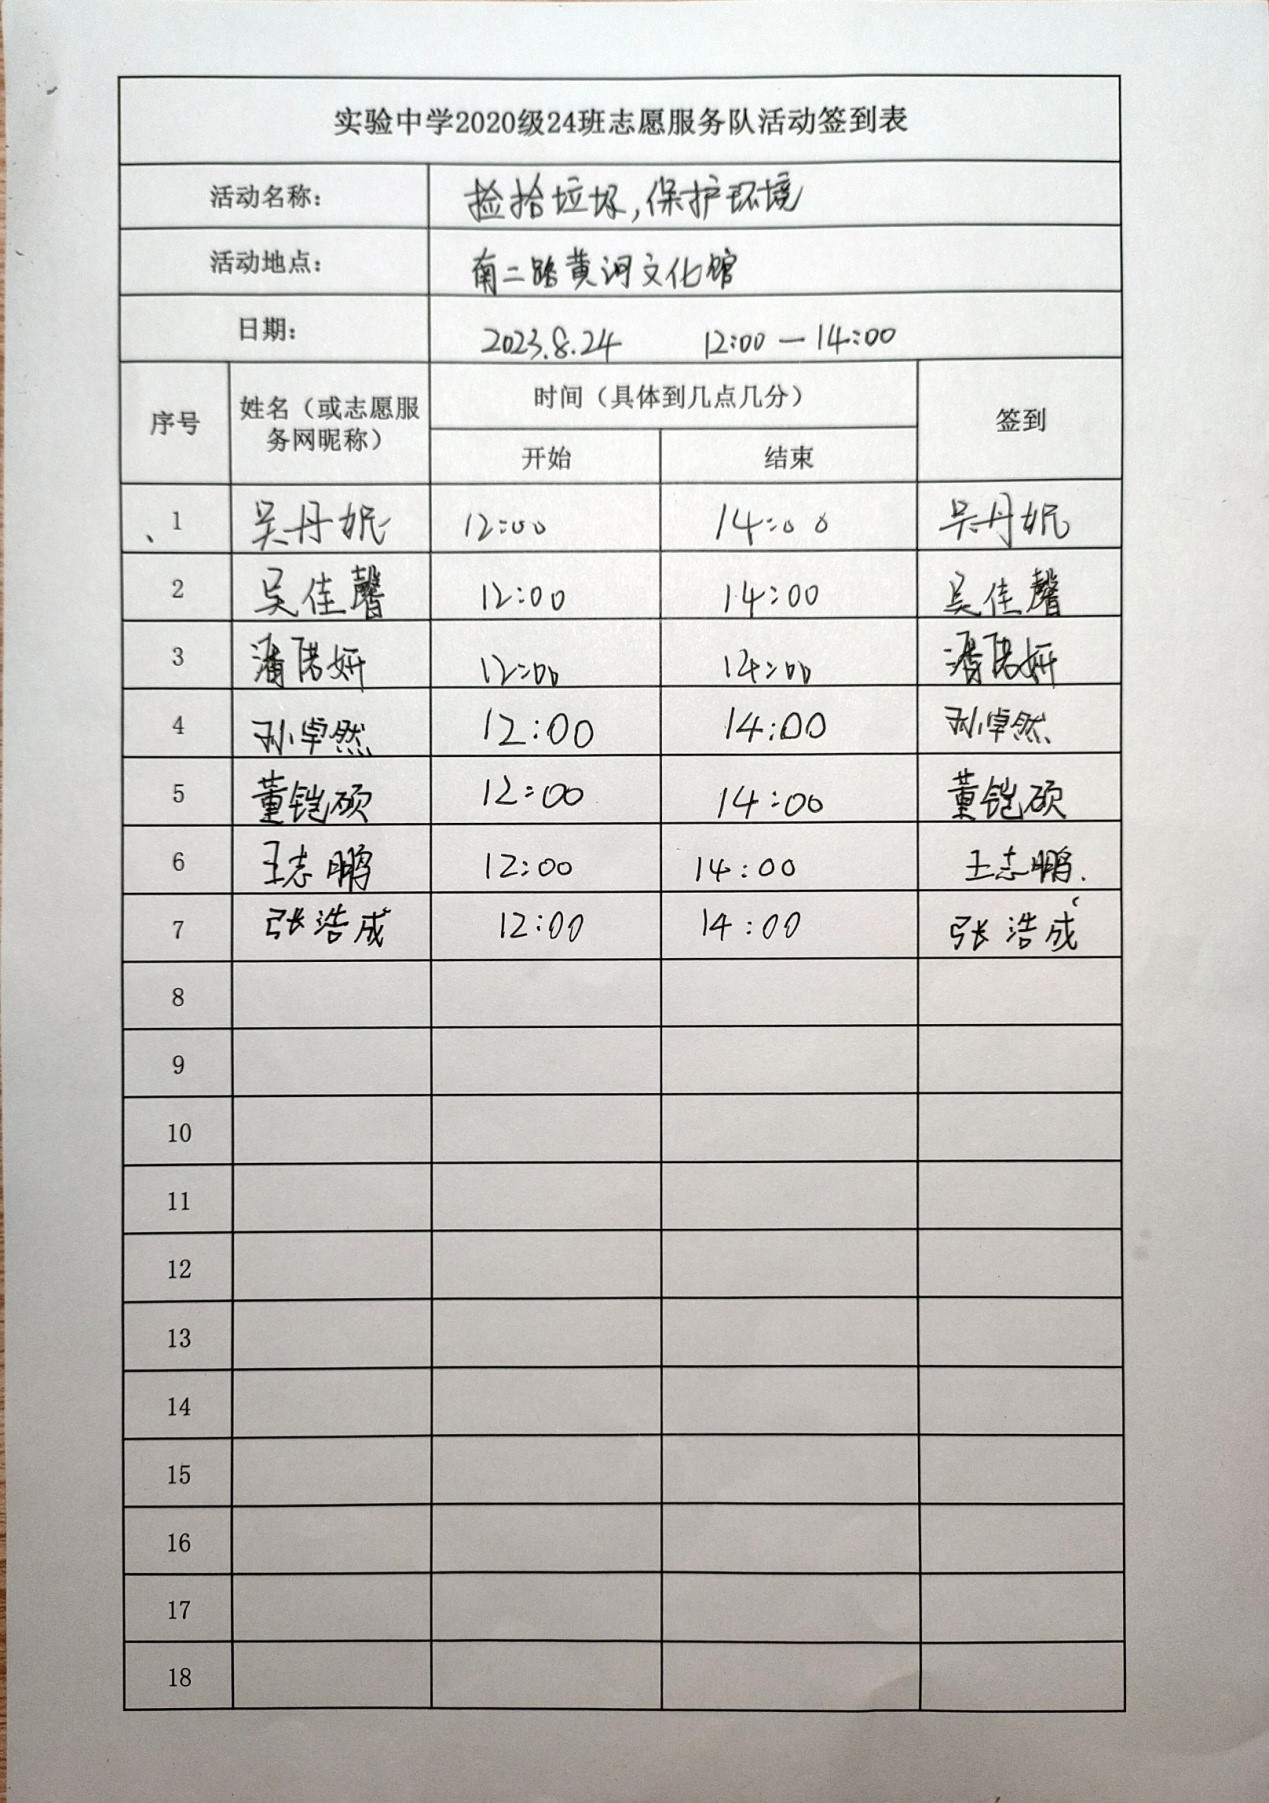 实验中学2020级24班志愿服务队活动签到表
活动名称： 捡拾垃圾,保护环境
活动地点： 南二路黄河文化馆
日期： 2023.8.24 12:00—14:00
序号 姓名（或志愿服务网昵称） 时间（具体到几点几分） 签到
开始 结束
、1 吴丹妮 12:00 14:00 吴丹妮
2 吴佳馨 12:00 14:00 吴佳馨
3 潘诺妍 12:00 14:00 潘诺妍
4 孙卓然 12:00 14:00 孙卓然
5 董铠硕 12:00 14:00 董铠硕
6 王志鹏 12:00 14:00 王志鹏.
7 张浩成 12:00 14:00 张浩成
8
9
10
11
12
13
14
15
16
17
18